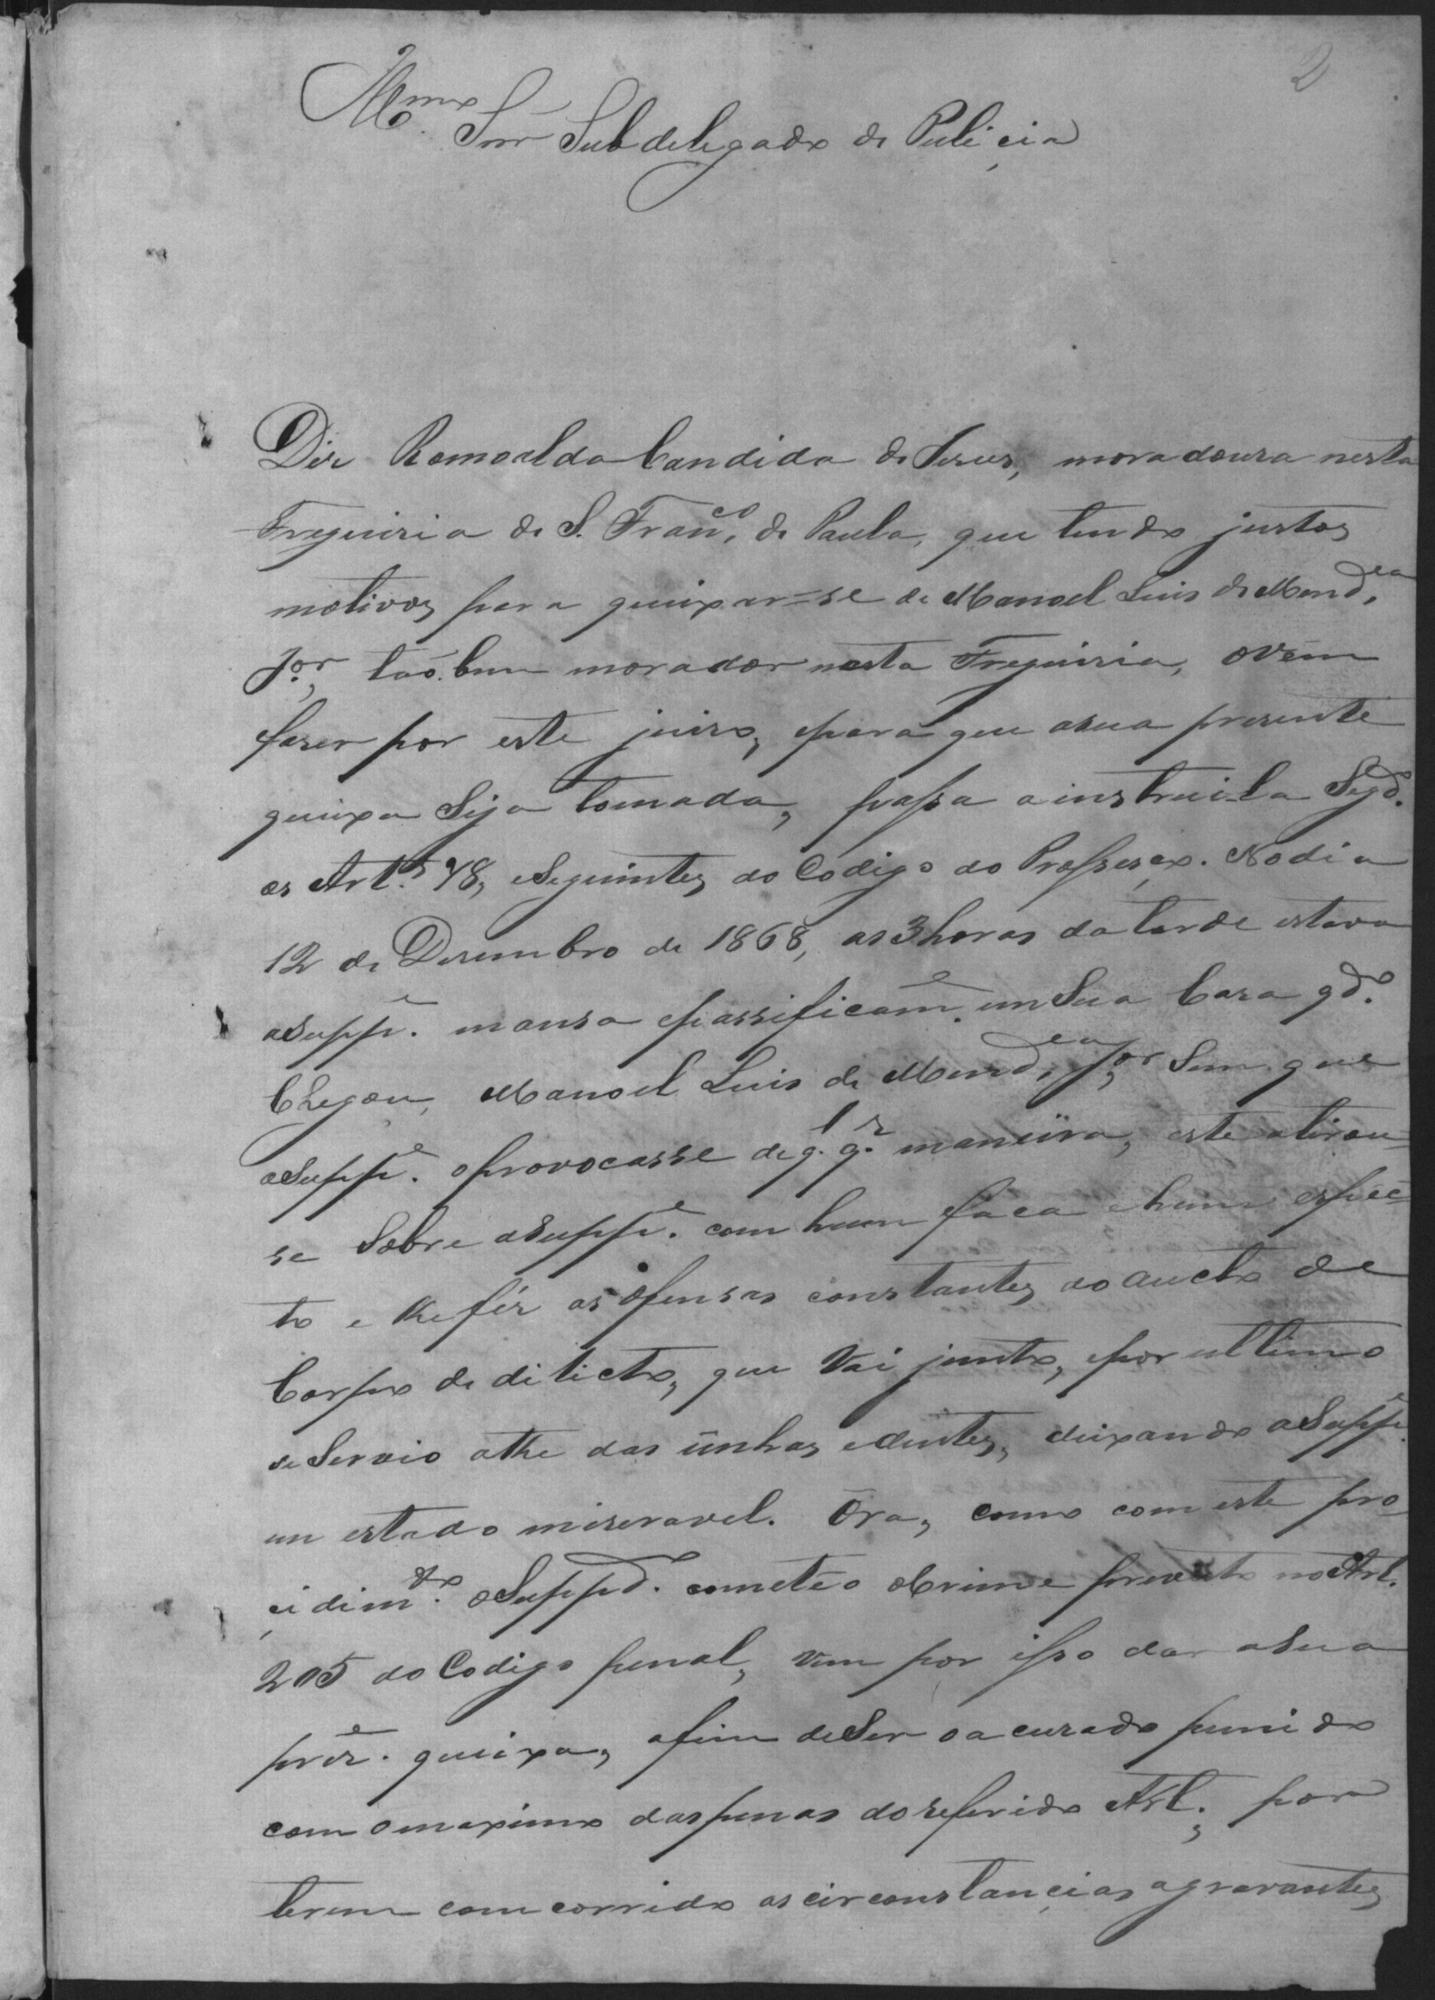 2
Illmo
Snr Subdelegado de Puliçia
Diz Romoalda Candida de Jesus, moradoura nesta
Freguisia de S. Franco. de Paula, que tendo justos
motivos para quixar-se de Manoel Luis de Mendça.
Jor., taõ.bem morador nesta Freguisia, ovem
faser por este juiso, epara que asua presente
quixa Seja tomada, passa a instrui-la Segdo.
os Arts. 78, eSeguintes do Codigo do Prossesço. No dia
12 de Desembro de 1868, as 3 horas da tarde estava
aSuppe. mansa epassificame. em Sua Casa qdo.
Chegou, Manoel Luis de Mendça. Jor., Sem que
aSuppe. oprovocasse de ql. qr. maneira, este atirou-
se Sobre aSuppe. com huma faca e hum espêe-
to e lhe fés as ofensas constantes do aucto de
Corpo de dilicto, que vai junto, epor ultimo
se Servio athe das únhas edentes, deixando aSuppe.
em estado miseravel. Ora, como com este pro-
çidimto. oSuppdo. cometêo oCrime previsto no Art.
205 do Codigo penal, vem por isso dar asua
prêse. queixa, afim deSer oacusado punido
com omaximo daspenas doreferido Art., por
terem comcorrido as circonstançias agravantes